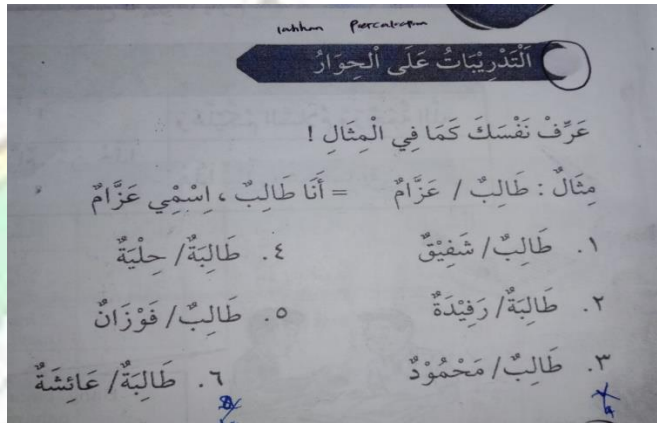 latihan Percakapan
اَلتَّدْرِيْبَاتُ عَلَى الْحِوَارُ
عَرِّفْ نَفْسَكَ كَمَا فِي الْمِثَالِ !
مِثَالٌ : طَالِبٌ / عَزَّامٌ = أَنَا طَالِبٌ ، اِسْمِْي عَزَّامٌ
١. طَالِبٌ/ شَفِيْقٌ
٤. طَالِبَةٌ/ حِلْيَةٌ
٢. طَالِبَةٌ/ رَفِيْدَةٌ
٥. طَالِبٌ/ فَوْزَانٌ
٣. طَالِبٌ/ مَحْمُوْدٌ
٦. طَالِبَةٌ/ عَائِشَةٌ